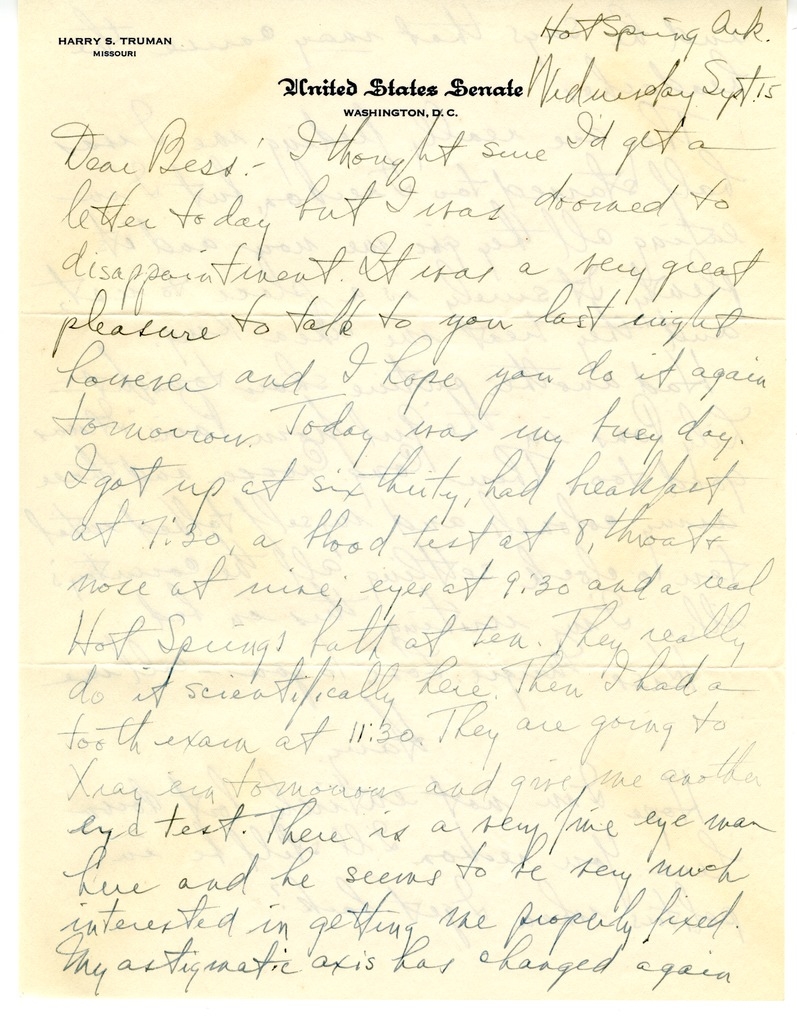 HARRY S. TRUMAN
MISSOURI
Hot Spring Ark.
United States Senate
Wednesday Sept. 15
WASHINGTON, D. C.
Dear Bess:- I thought sure I'd get a
letter today but I was doomed to
disappointment. It was a very great
pleasure to talk to you last night
however and I hope you do it again
tomorrow. Today was my busy day.
I got up at six thirty, had breakfast
at 7:30, a blood test at 8, throat &
nose at nine; eyes at 9:30 and a real
Hot Springs bath at ten. They really
do it scientifically here. Then I had a
tooth exam at 11:30. They are going to
Xray em tomorrow and give me another
eye test. There is a very fine eye man
here and he seems to be very much
interested in getting me properly fixed.
My astigmatic axis has changed again